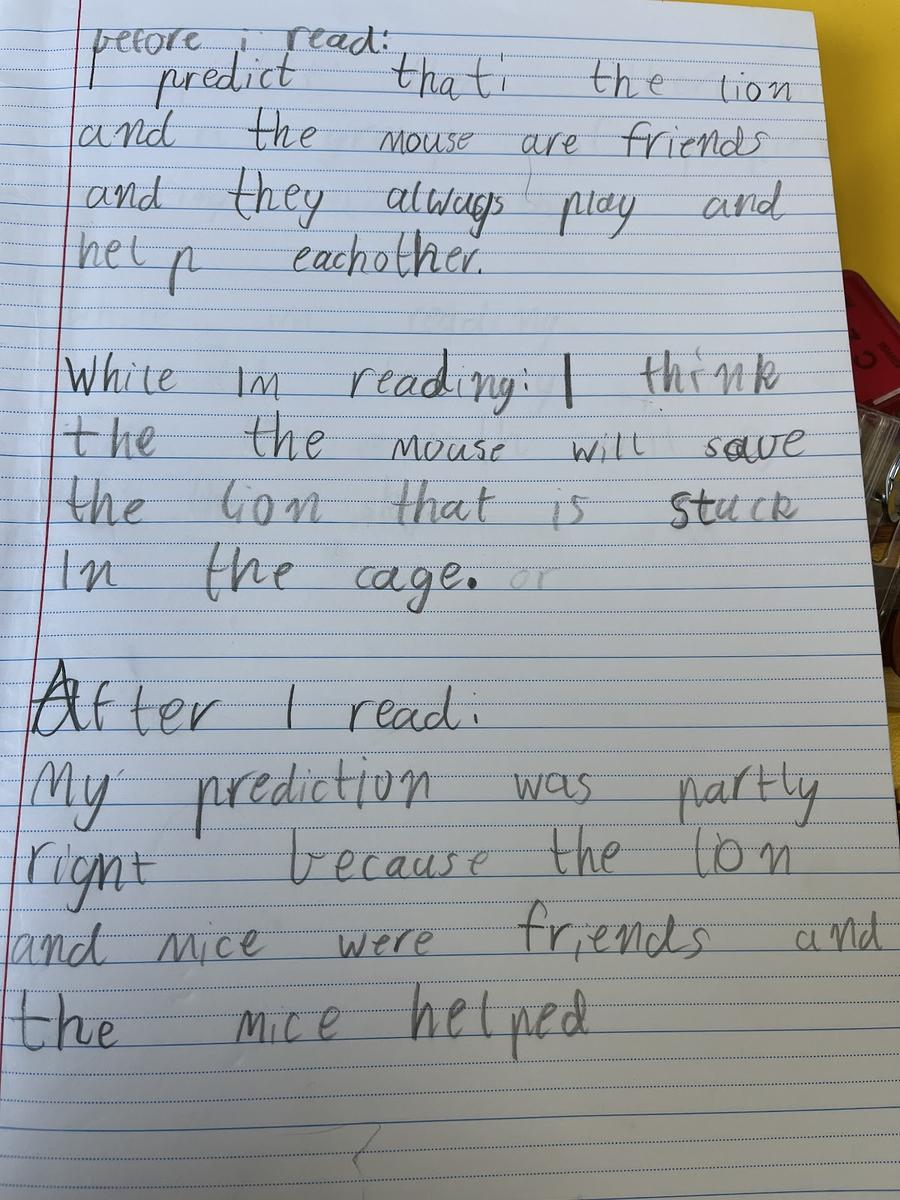 before i read:
I predict that the lion
and the mouse are friends
and they always play and
help eachother.
While im reading: I think
the the mouse will save
the lion that is stuck
In the cage. or
After I read:
My prediction was partly
right because the lion
and mice were friends and
the mice helped